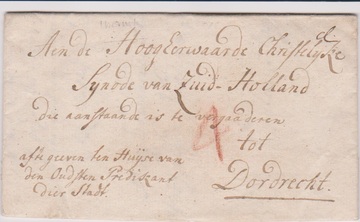 Aen de HoogEerwaarde Christelyke
Synode van Zuid-Holland
die aanstaande is te vergaaderen
4
tot
Dordrecht.
afte geeven ten Huijse van
den Oudsten Predikant
dier Stadt.